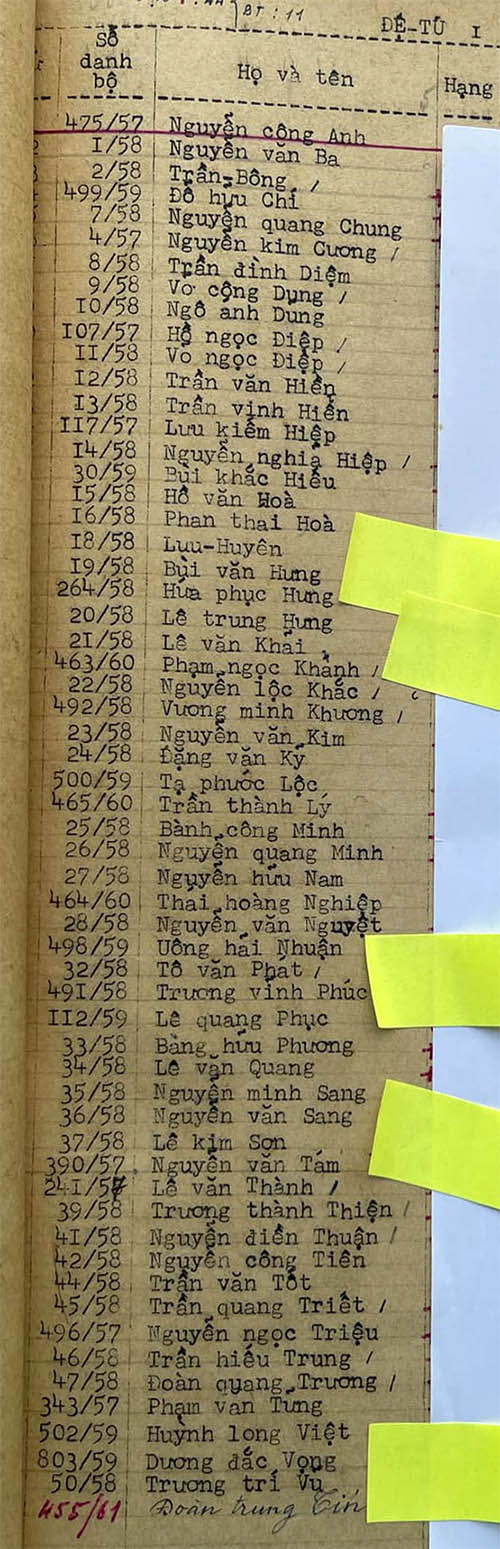 BT : 11
ĐỆ-TỨ I
Số danh bộ Họ và tên Hạng
475/57 Nguyễn công Anh
1/58 Nguyễn văn Ba
2/58 Trần-Bông /
499/59 Đỗ hữu Chí
7/58 Nguyễn quang Chung
4/57 Nguyễn kim Cương /
8/58 Trần đình Diệm
9/58 Võ công Dụng /
10/58 Ngô anh Dung
107/57 Hồ ngọc Điệp /
11/58 Võ ngọc Điệp /
12/58 Trần văn Hiền
13/58 Trần vinh Hiển
117/57 Lưu kiếm Hiệp
14/58 Nguyễn nghiã Hiệp /
30/59 Bùi khắc Hiếu
15/58 Hồ văn Hoà
16/58 Phan thai Hoà
18/58 Lưu-Huyên
19/58 Bùi văn Hưng
264/58 Hứa phục Hưng
20/58 Lê trung Hưng
21/58 Lê văn Khải
463/60 Phạm ngọc Khánh /
22/58 Nguyễn lộc Khắc /
492/58 Vương minh Khương /
23/58 Nguyễn văn Kim
24/58 Đặng văn Ký
500/59 Tạ phước Lộc
465/60 Trần thành Lý
25/58 Bành công Minh
26/58 Nguyễn quang Minh
27/58 Nguyễn hữu Nam
464/60 Thái hoàng Nghiệp
28/58 Nguyễn văn Nguyệt
498/59 Uông hải Nhuận
32/58 Tô văn Phát /
491/58 Trương vinh Phúc
112/59 Lê quang Phục
33/58 Bàng hữu Phương
34/58 Lê văn Quang
35/58 Nguyễn minh Sang
36/58 Nguyễn văn Sang
37/58 Lê kim Sơn
390/57 Nguyễn văn Tám
241/57 Lê văn Thành /
39/58 Trương thành Thiện /
41/58 Nguyễn điền Thuận /
42/58 Nguyễn công Tiên
44/58 Trần văn Tốt
45/58 Trần quang Triết /
496/57 Nguyễn ngọc Triệu
46/58 Trần hiếu Trung /
47/58 Đoàn quang Trương /
343/57 Phạm van Tưng
502/59 Huỳnh long Việt
803/59 Dương đắc Vọng
50/58 Trương trí Vũ
455/61 Đoàn trung Tín